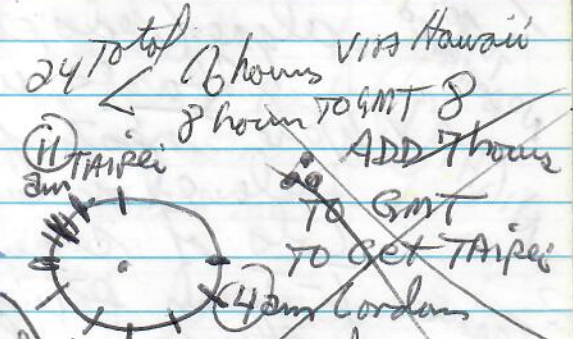 24 Total
16 hours VIA Hawaii
8 hours TO GMT 8
ADD 7 hours
TO GMT
TO Get TAipei
11 am TAIPEi
4 am London